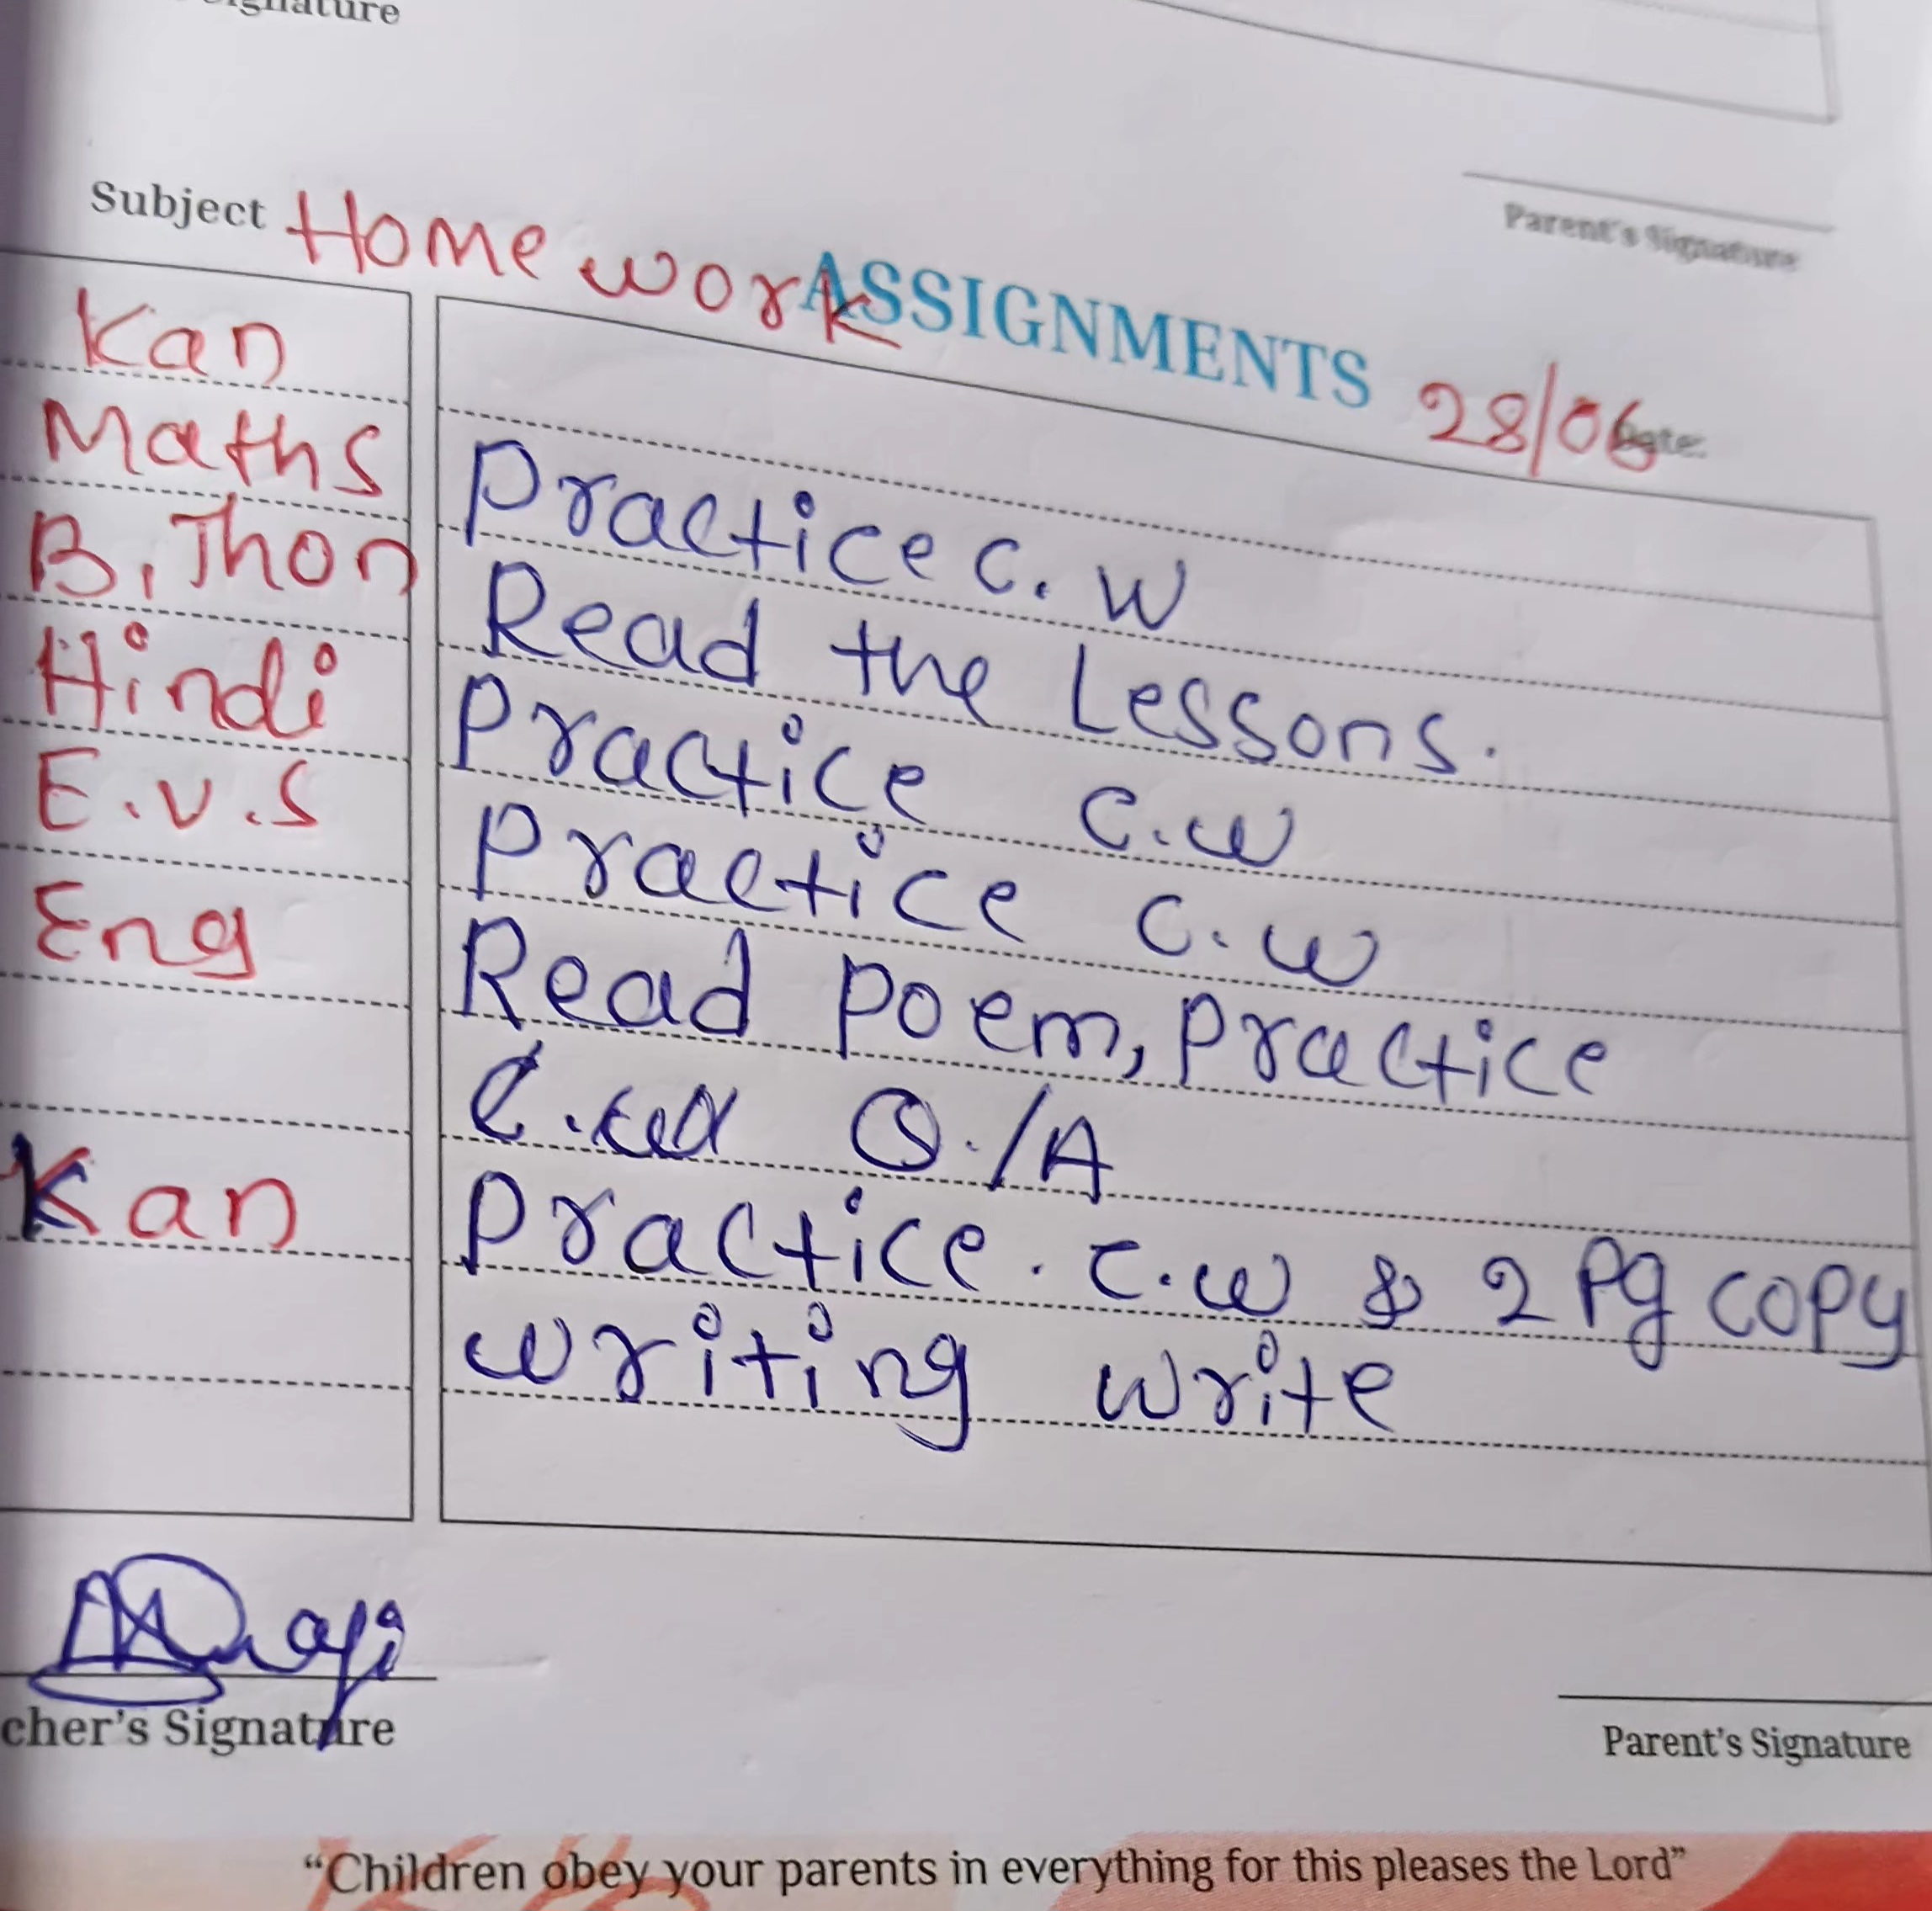 Signature
Parent's Signature
Subject Home work ASSIGNMENTS 28/06 Date:
Kan
Maths Practice C.W
B.Thon Read the Lessons.
Hindi Practice C.W
E.V.S Practice C.W
Eng Read Poem, Practice
C.w Q./A
Kan Practice. C.W & 2 Pg copy
writing write
cher's Signature
Parent's Signature
“Children obey your parents in everything for this pleases the Lord”